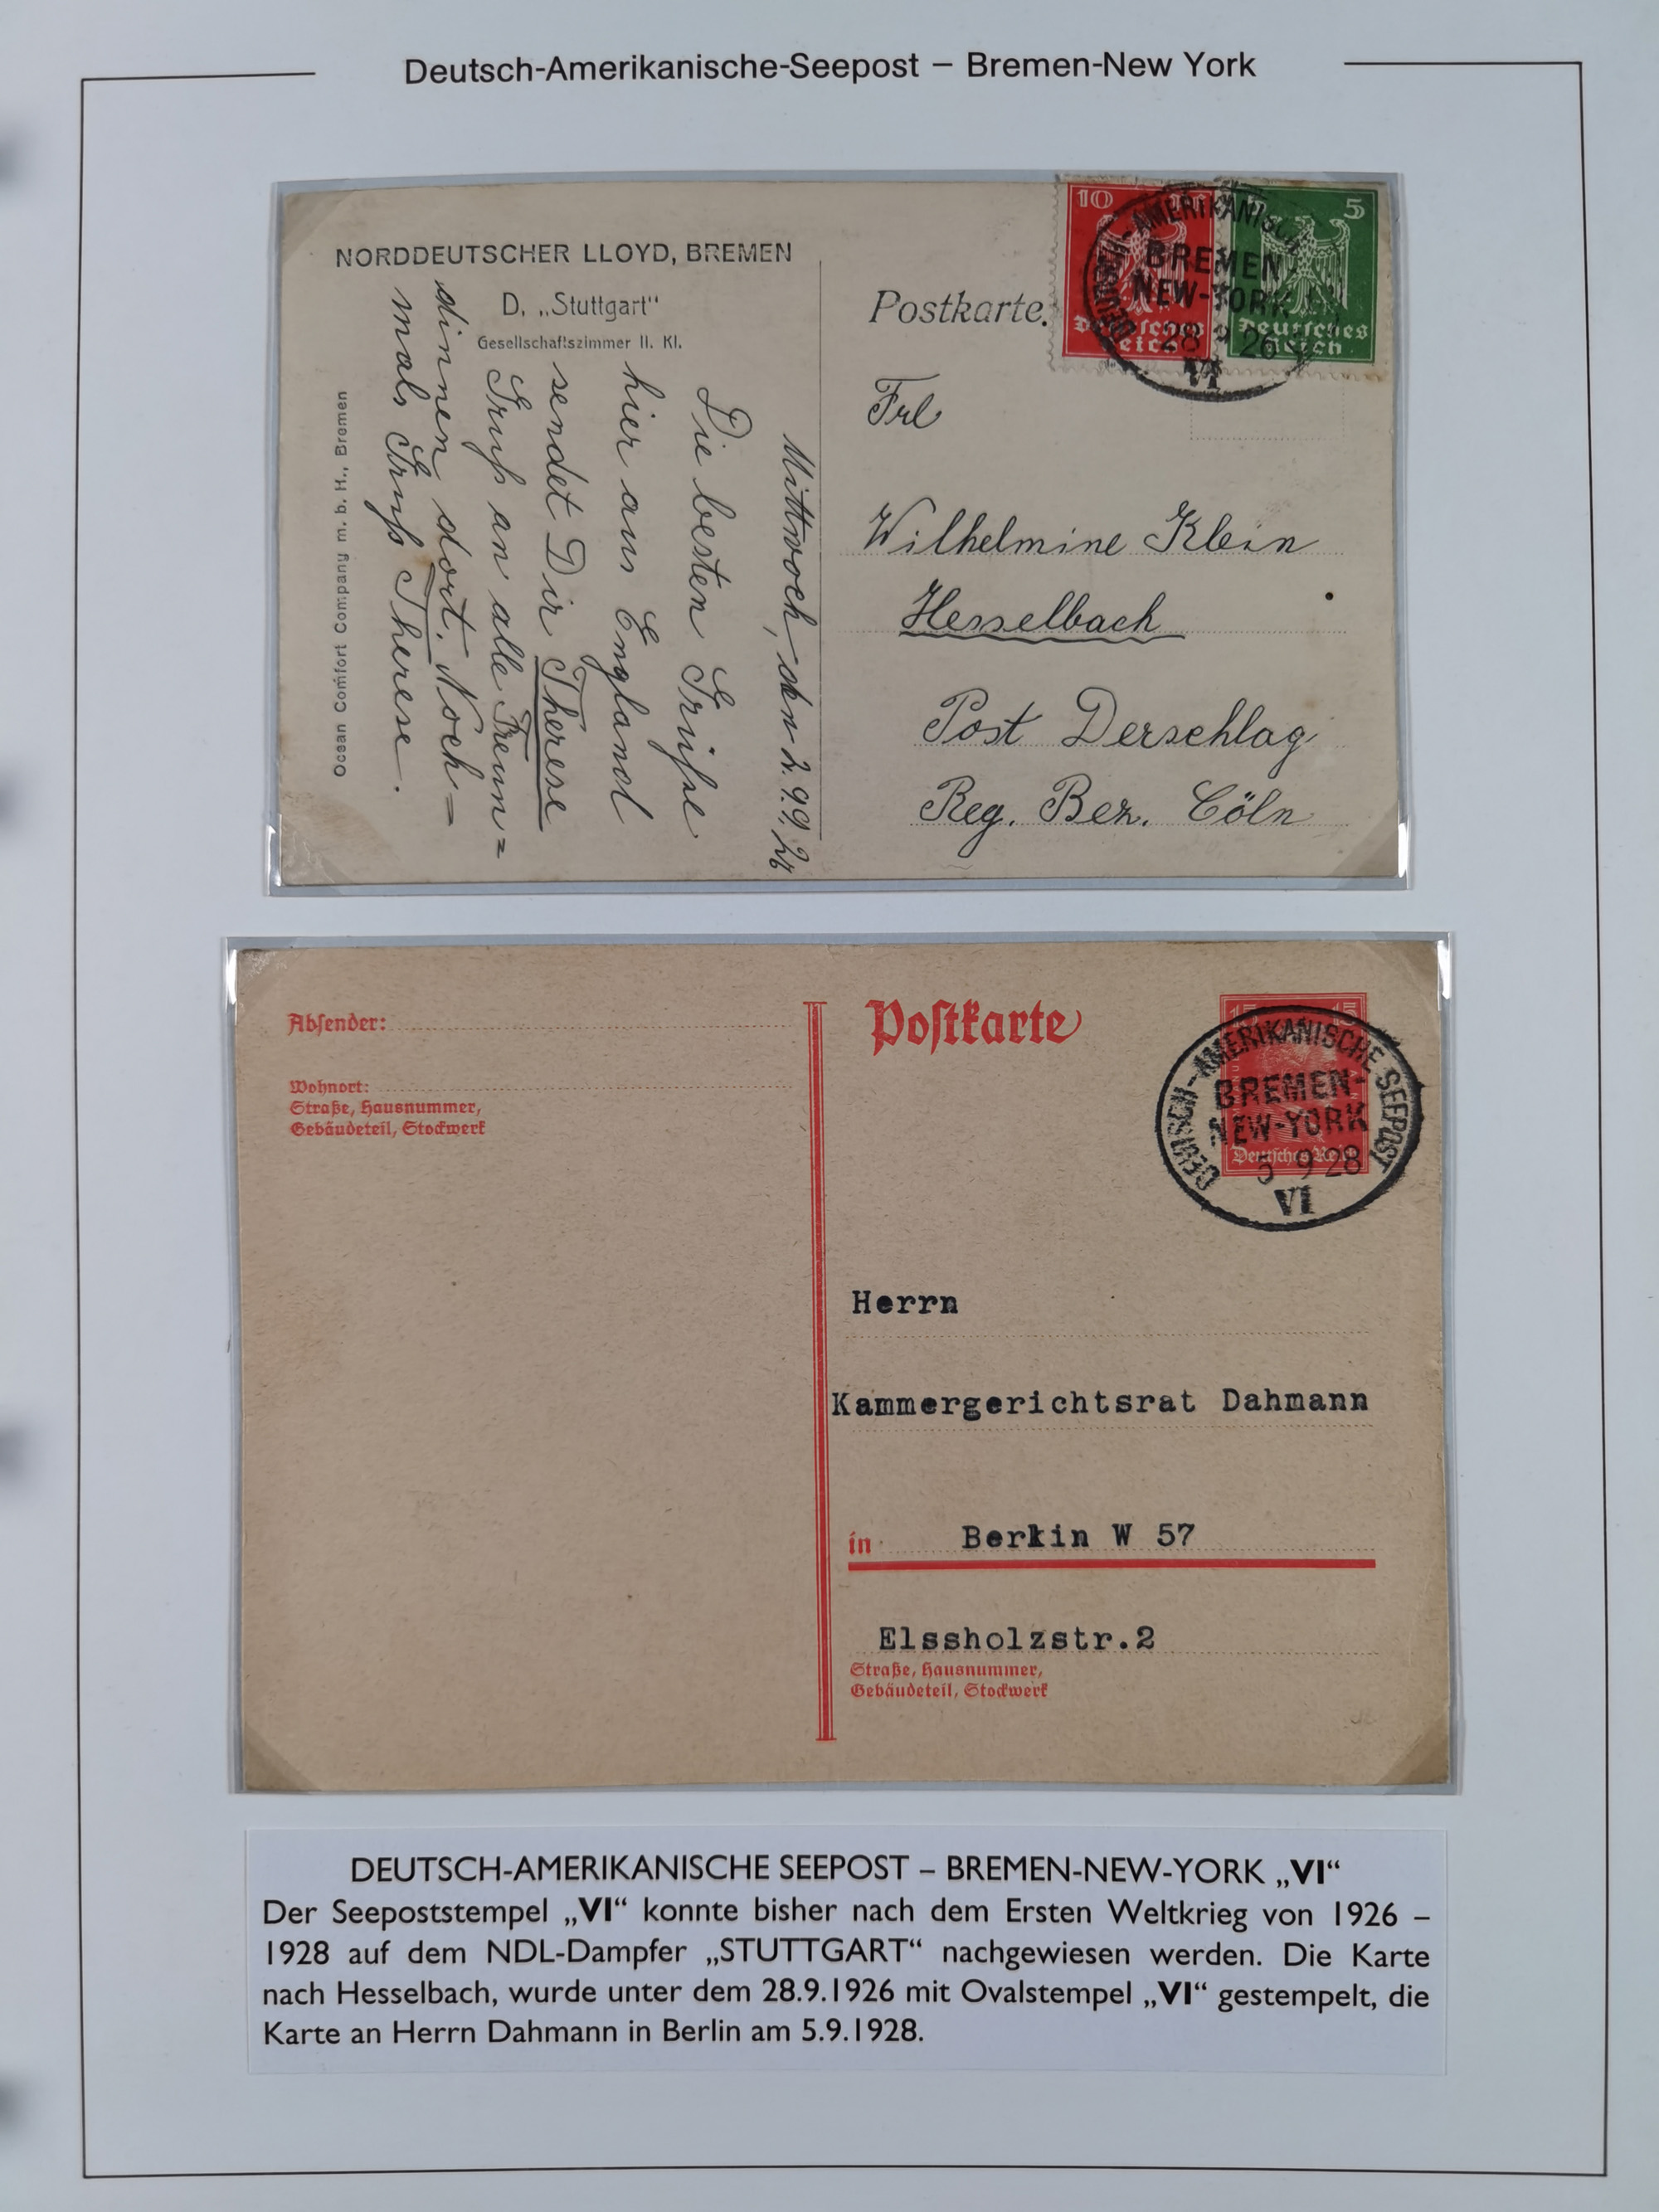 Deutsch-Amerikanische-Seepost – Bremen-New York
NORDDEUTSCHER LLOYD, BREMEN
D. „Stuttgart“
Gesellschaftszimmer II. Kl.
Ocean Comfort Company m. b. H., Bremen
Mittwoch, den
Die besten Grüße
hier aus England
sendet Dir Therese
Gruß an alle Freun=
dinnen dort. Noch=
mals Gruß Therese.
Postkarte.
10
5
Deutsches
Reich
Deutsches
Reich
DEUTSCH-AMERIKANISCHE
BREMEN-
NEW-YORK
28 9 26
VI
Frl
Wilhelmine Klein
Hesselbach
Post Derschlag
Reg. Bez. Cöln
Absender:
Wohnort:
Straße, Hausnummer,
Gebäudeteil, Stockwerk
Postkarte
15 15
Deutsches Reich
DEUTSCH-AMERIKANISCHE SEEPOST
BREMEN-
NEW-YORK
5 9 28
VI
Herrn
Kammergerichtsrat Dahmann
in Berkin W 57
Elssholzstr.2
Straße, Hausnummer,
Gebäudeteil, Stockwerk
DEUTSCH-AMERIKANISCHE SEEPOST – BREMEN-NEW-YORK „VI“
Der Seepoststempel „VI“ konnte bisher nach dem Ersten Weltkrieg von 1926 –
1928 auf dem NDL-Dampfer „STUTTGART“ nachgewiesen werden. Die Karte
nach Hesselbach, wurde unter dem 28.9.1926 mit Ovalstempel „VI“ gestempelt, die
Karte an Herrn Dahmann in Berlin am 5.9.1928.